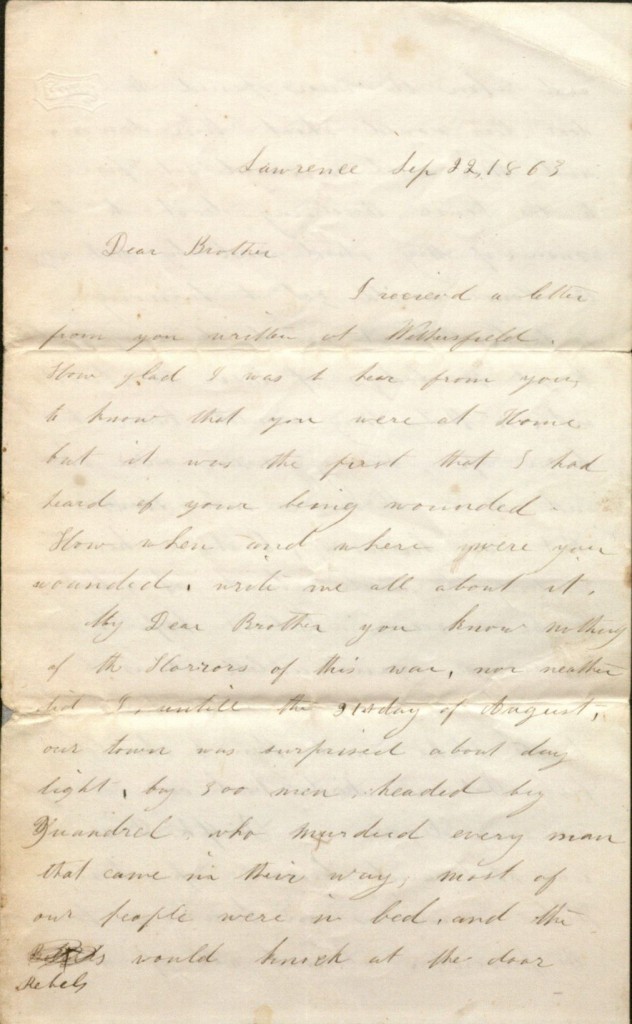 Lawrence Sep 22, 1863
Dear Brother
I receievd a letter
from you written at Wethersfield.
How glad I was to hear from you,
to know that you were at Home
but it was the first that I had
heard of your being wounded.
How when and where were you
wounded, write me all about it.
My Dear Brother you know nothing
of the Horrors of this war, nor neather
did I, untill the 21st day of August,
our town was surprised about day
light, by 300 men headed by
Quandrel who murdied every man
that came in their way, most of
our people were in bed, and the
would knock at the door
Rebels